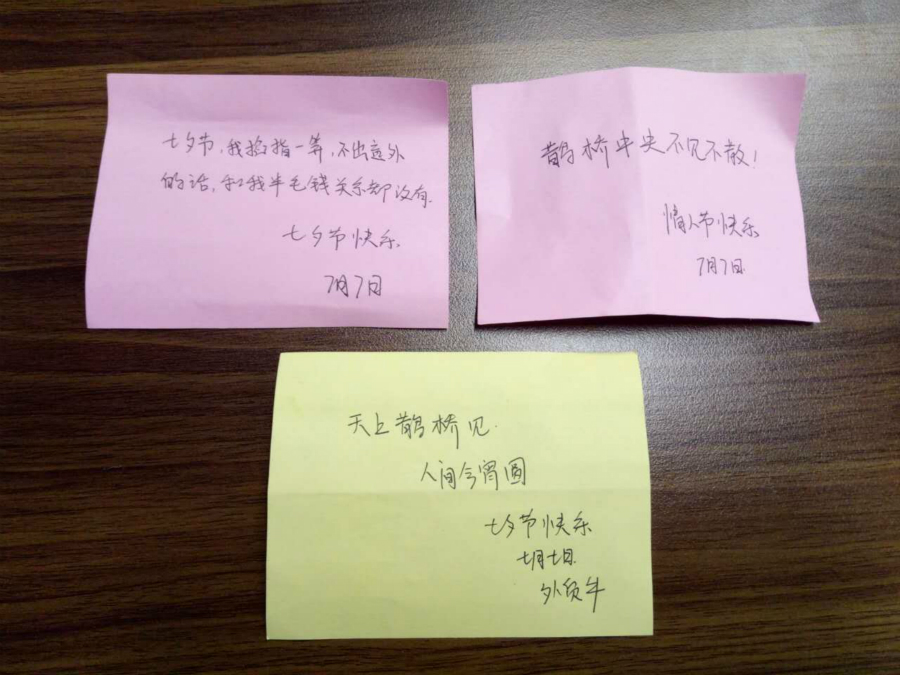 七夕节,我掐指一算,不出意外
的话,和我半毛钱关系都没有.
七夕节快乐.
7月7日
鹊桥中央不见不散!
情人节快乐
7月7日
天上鹊桥见.
人间今宵圆
七夕节快乐
七月七日
外质牛